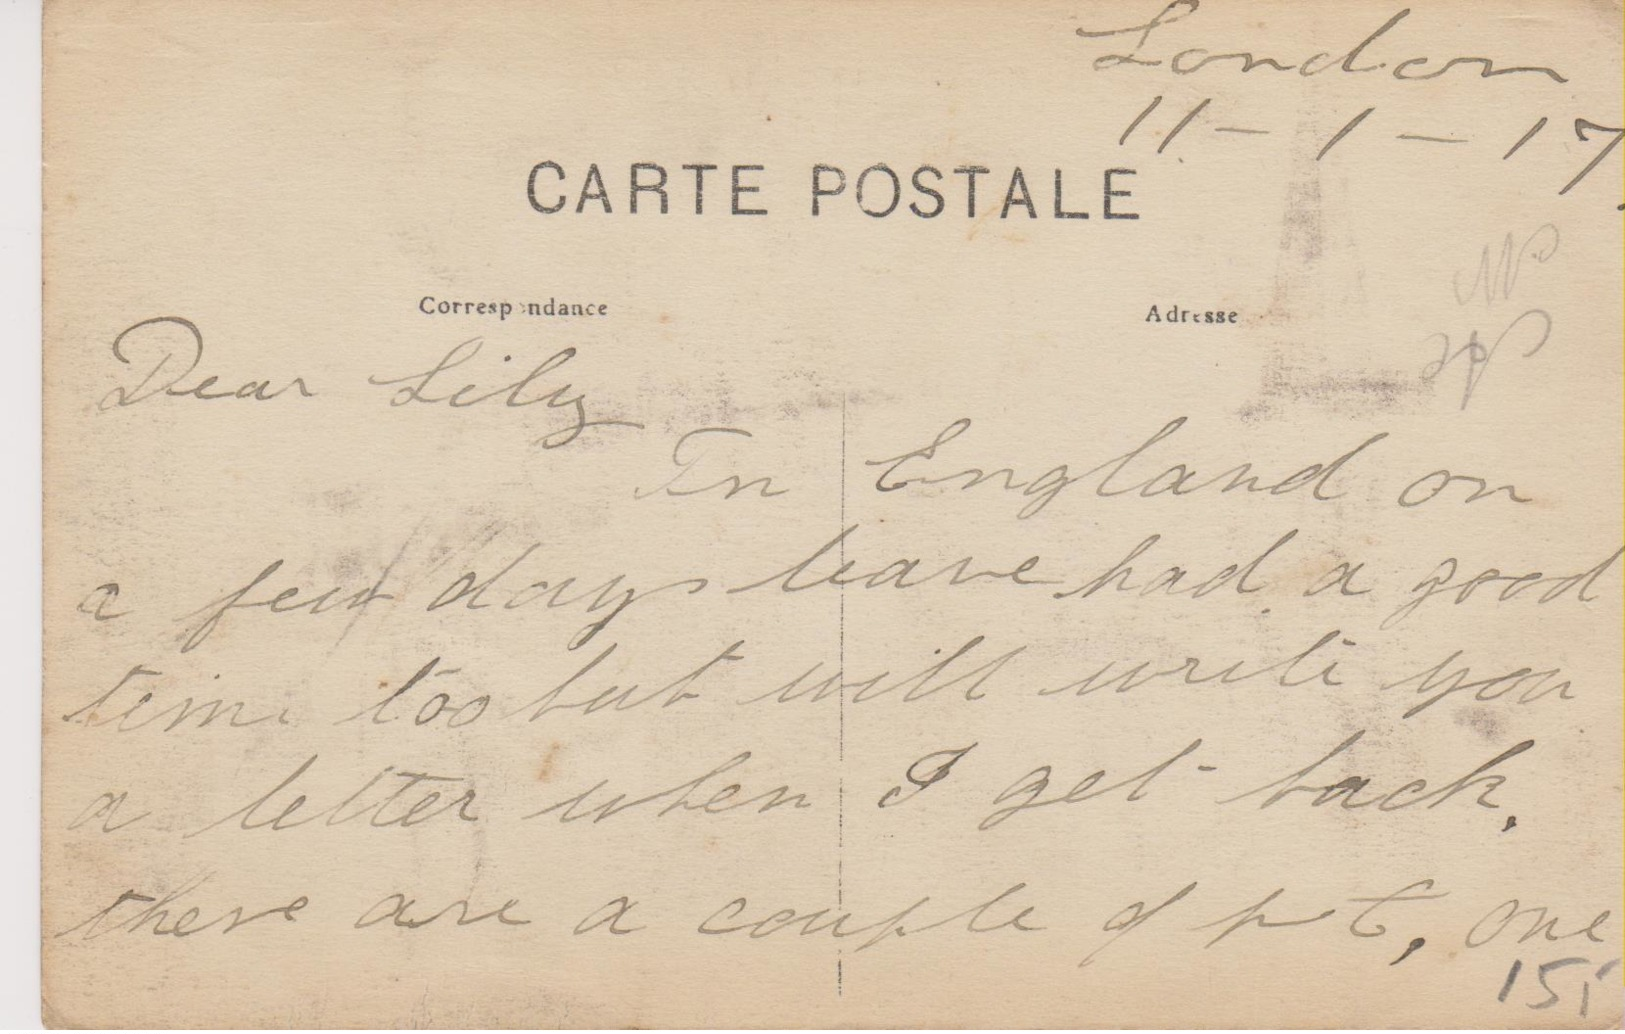 London
11-1-17.
CARTE POSTALE
Correspondance
Adresse
Dear Lily
In England on
a few days leave had a good
time too but will write you
a letter when I get back.
there are a couple of
one